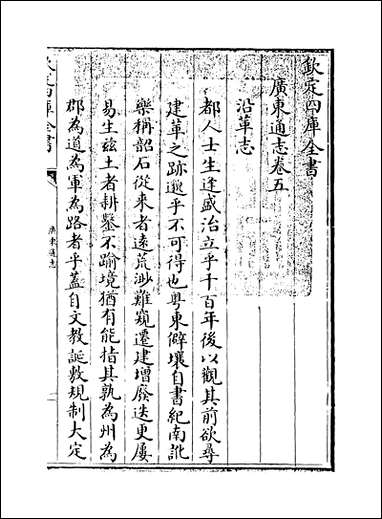 欽定四庫全書
廣東通志卷五
沿革志
都人士生逢盛治立乎千百年後以觀其前欲尋
建革之跡邈乎不可得也粤東僻壤自書紀南訛
樂稱韶石從來者遠荒渺難窺遷建增廢迭更屢
易生兹土者耕鑿不踰境猶有能指其孰為州為
郡為道為軍為路者乎蓋自文教誕敷規制大定
欽定四庫全書
廣東通志